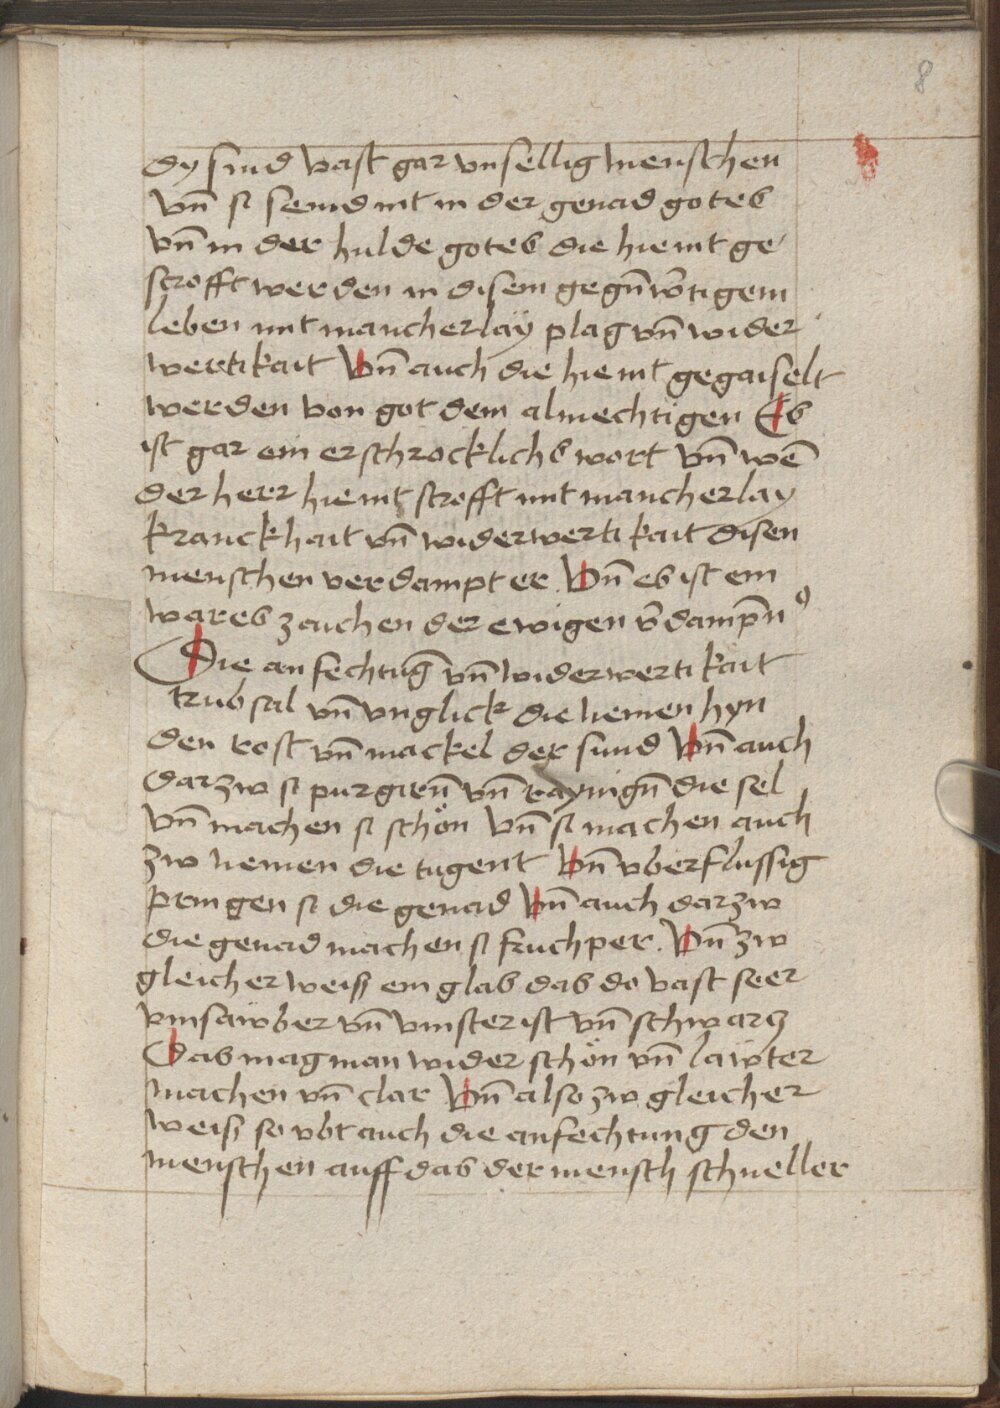 8
dy sind vast gar vnsellig menschen
vn̄ si seind nit in der genad gotes
vn̄ in der hulde gotes die hie nit ge
strofft werden in disem gegn̄wꝛ̄tigem
leben mit mancherlaÿ plag vn̄ wider
wertikait Vn̄ auch die hie nit gegaiselt
werden von got dem almechtigen Es
ist gar ein erschrocklichs wort vn̄ wē
der herr hie nit strofft mit mancherlay
kranckhait vn̄ widerwertikait disen
menschen verdampt er. Vn̄ es ist ein
wares zaichen der ewigen v̄damp̄nꝰ
Die anfechtūg vn̄ widerwertikait
trubsal vn̄ vnglick die nemen hyn
den rost vn̄ mackel der sund Vn̄ auch
darzw si purgirn̄ vn̄ raynign̄ die sel
vn̄ machen si schön vn̄ si machen auch
zw nemen die tugent Vn̄ vberflussig
pringen si die genad Vn̄ auch darzw
die genad machen si fruchper. Vn̄ zw
gleicher weiß ein glas das do vast seer
vnsawber vn̄ vinster ist vn̄ schwarz
Das mag man wider schön vn̄ lawter
machen vn̄ clar Vn̄ also zw gleicher
weiß so vbt auch die anfechtung den
menschen auff das der mensch schneller